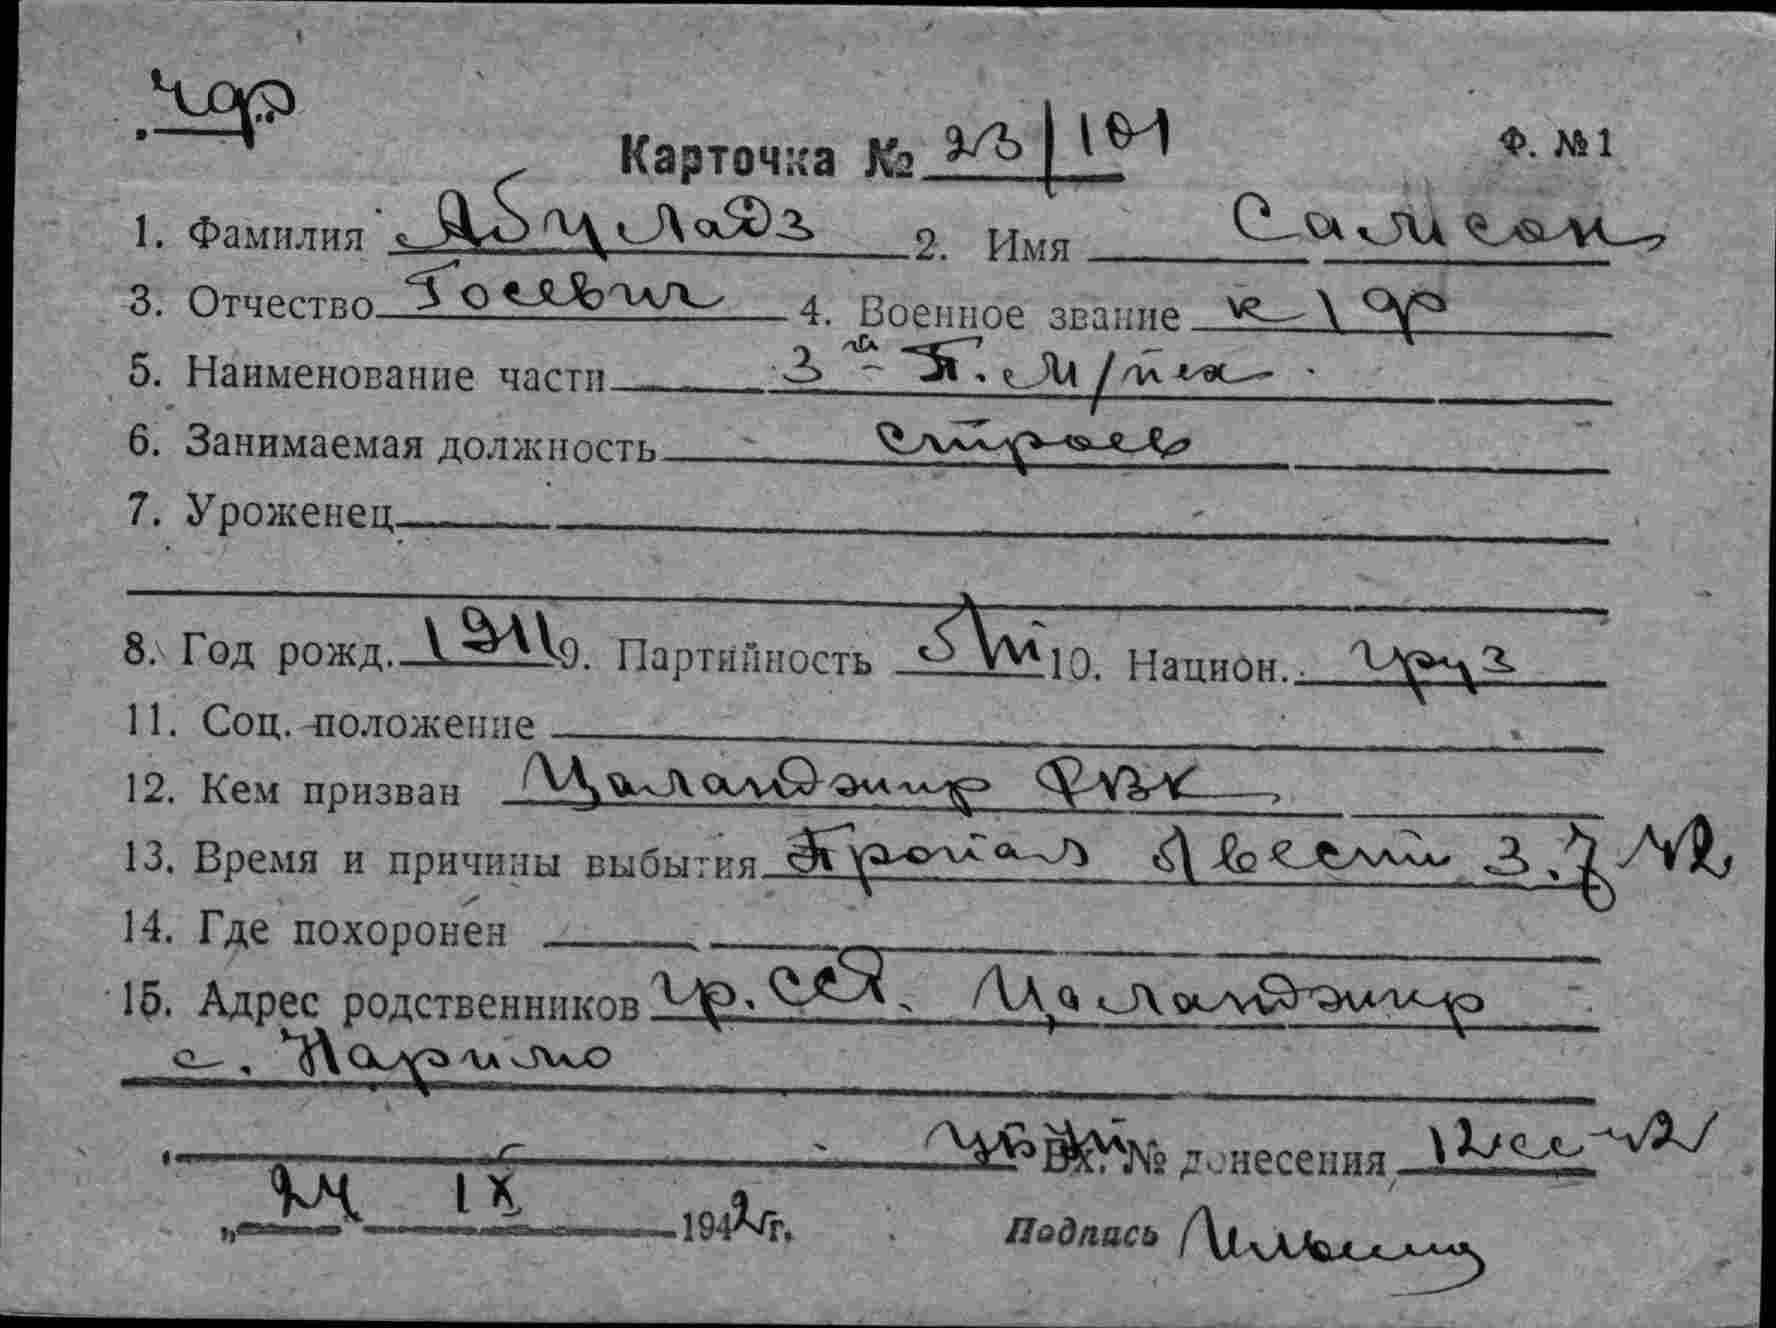 Карточка № 23/101 Ф. №1
1. Фамилия Абуладз 2. Имя Самсон
3. Отчество Госевич 4. Военное звание к/ф
5. Наименование части 3й П.
6. Занимаемая должность строев
7. Уроженец
8. Год рожд. 1911 9. Партийность б/п 10. Национ. груз
11. Соц. положение
12. Кем призван Цаланджир РВК
13. Время и причины выбытия Пропал без вести 3.7 42
14. Где похоронен
15. Адрес родственников Гр. ССР. Цаланджир
с. Наримо
Вх. № донесения
„24 IX 1942 г. Подпись